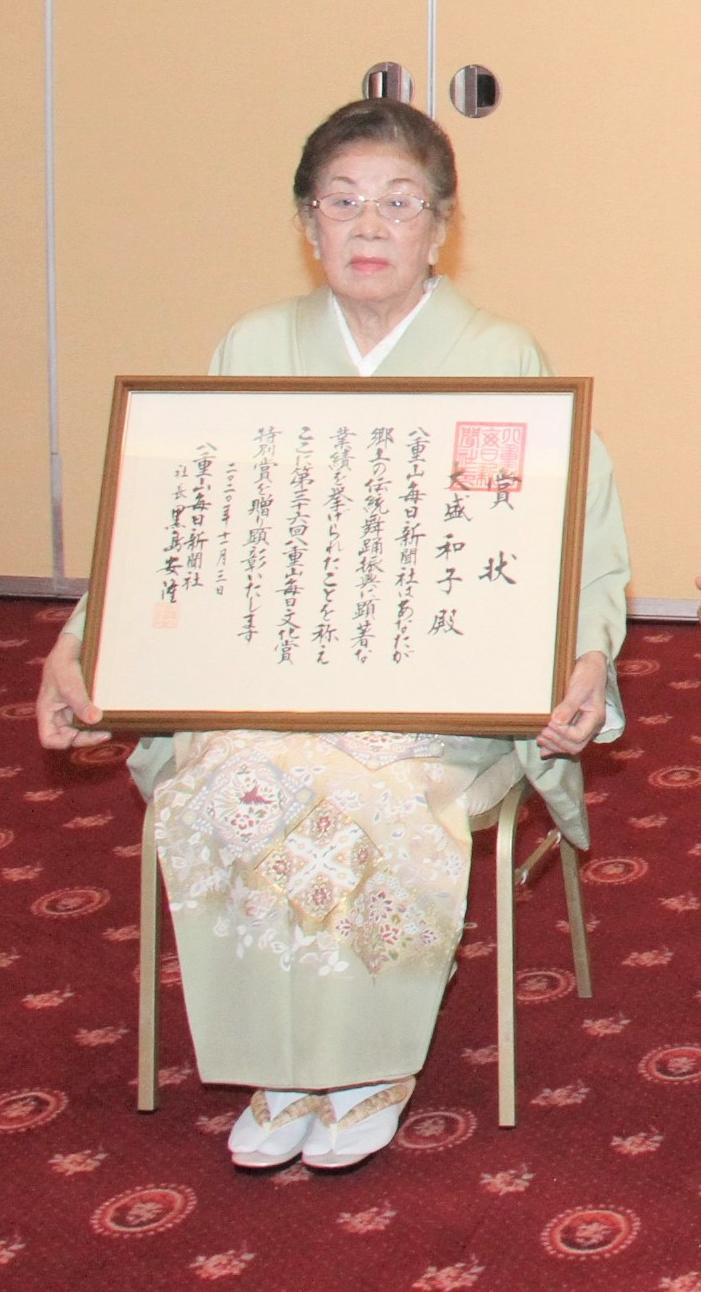 賞状
大盛和子殿
八重山毎日新聞社はあなたが
郷土の伝統舞踊振興に顕著な
業績を挙げられたことを称え
ここに第三十六回八重山毎日文化賞
特別賞を贈り顕彰いたします
二〇二〇年十一月三日
八重山毎日新聞社
社長 黒島安隆